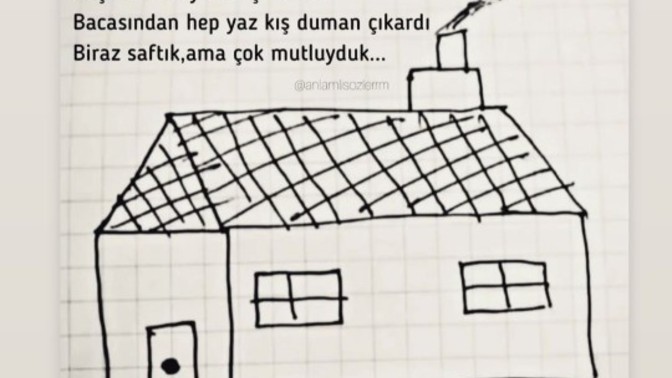 Bacasından hep yaz kış duman çıkardı
Biraz saftık,ama çok mutluyduk...
@anlamlisozlerrm